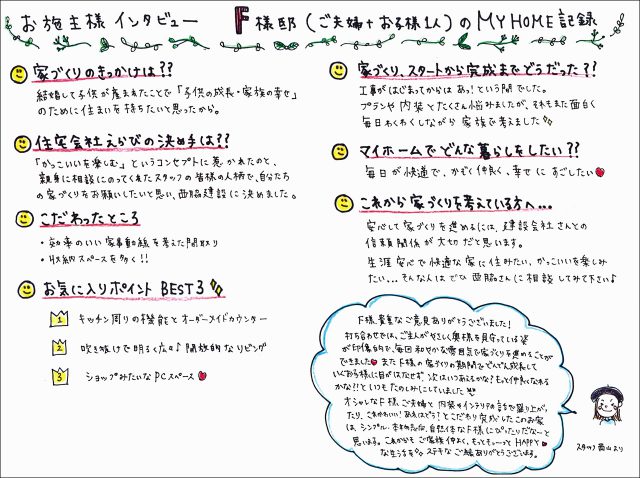 お施主様インタビュー F様邸(ご夫婦+お子様1人)のMY HOME記録
家づくりのきっかけは??
結婚して子供が産まれたことで「子供の成長・家族の幸せ」
のために住まいを持ちたいと思ったから。
住宅会社えらびの決め手は??
「かっこいいを楽しむ」というコンセプトに惹かれたのと、
親身に相談にのってくれたスタッフの皆様の人柄で、自分たち
の家づくりをお願いしたいと思い、西脇建設に決めました。
こだわったところ
・効率のいい家事動線を考えた間取り
・収納スペースを多く!!
お気に入りポイント BEST3
1 キッチン周りの機能とオーダーメイドカウンター
2 吹き抜けで明るく広々♪開放的なリビング
3 ショップみたいなPCスペース
家づくり、スタートから完成までどうだった??
工事がはじまってからはあっ!という間でした。
プランや内装とたくさん悩みましたが、それもまた面白く
毎日わくわくしながら家族で考えました
マイホームでどんな暮らしをしたい??
毎日が快適で、かぞく仲良く、幸せにすごしたい
これから家づくりを考えている方へ...
安心して家づくりを進めるには、建設会社さんとの
信頼関係が大切だと思います。
生涯安心で快適な家に住みたい、かっこいいを楽しみ
たい...そんな人はぜひ西脇さんに相談してみて下さい♪
F様、貴重なご意見ありがとうございました!
打ち合わせでは、ご主人がやさしく奥様を見守っている姿
が印象的で、毎回和やかな雰囲気で家づくりを進めることが
できました また F様の家づくりの期間でどんどん成長して
いくお子様に目がはなせず、次はいつあえるかな?もっと仲良くなれる
かな!!といつもたのしみにしていました
オシャレなF様ご夫婦と内装やインテリアの話で盛り上がっ
たり、これかわいい!あれはどう?とこだわり完成したこのお家
は、シンプル、自然体なF様にぴったりだな〜と
思います。これからもご家族仲よく、もっともっ〜とHAPPY
な生活を ステキなご縁ありがとうございます。
スタッフ 西山より